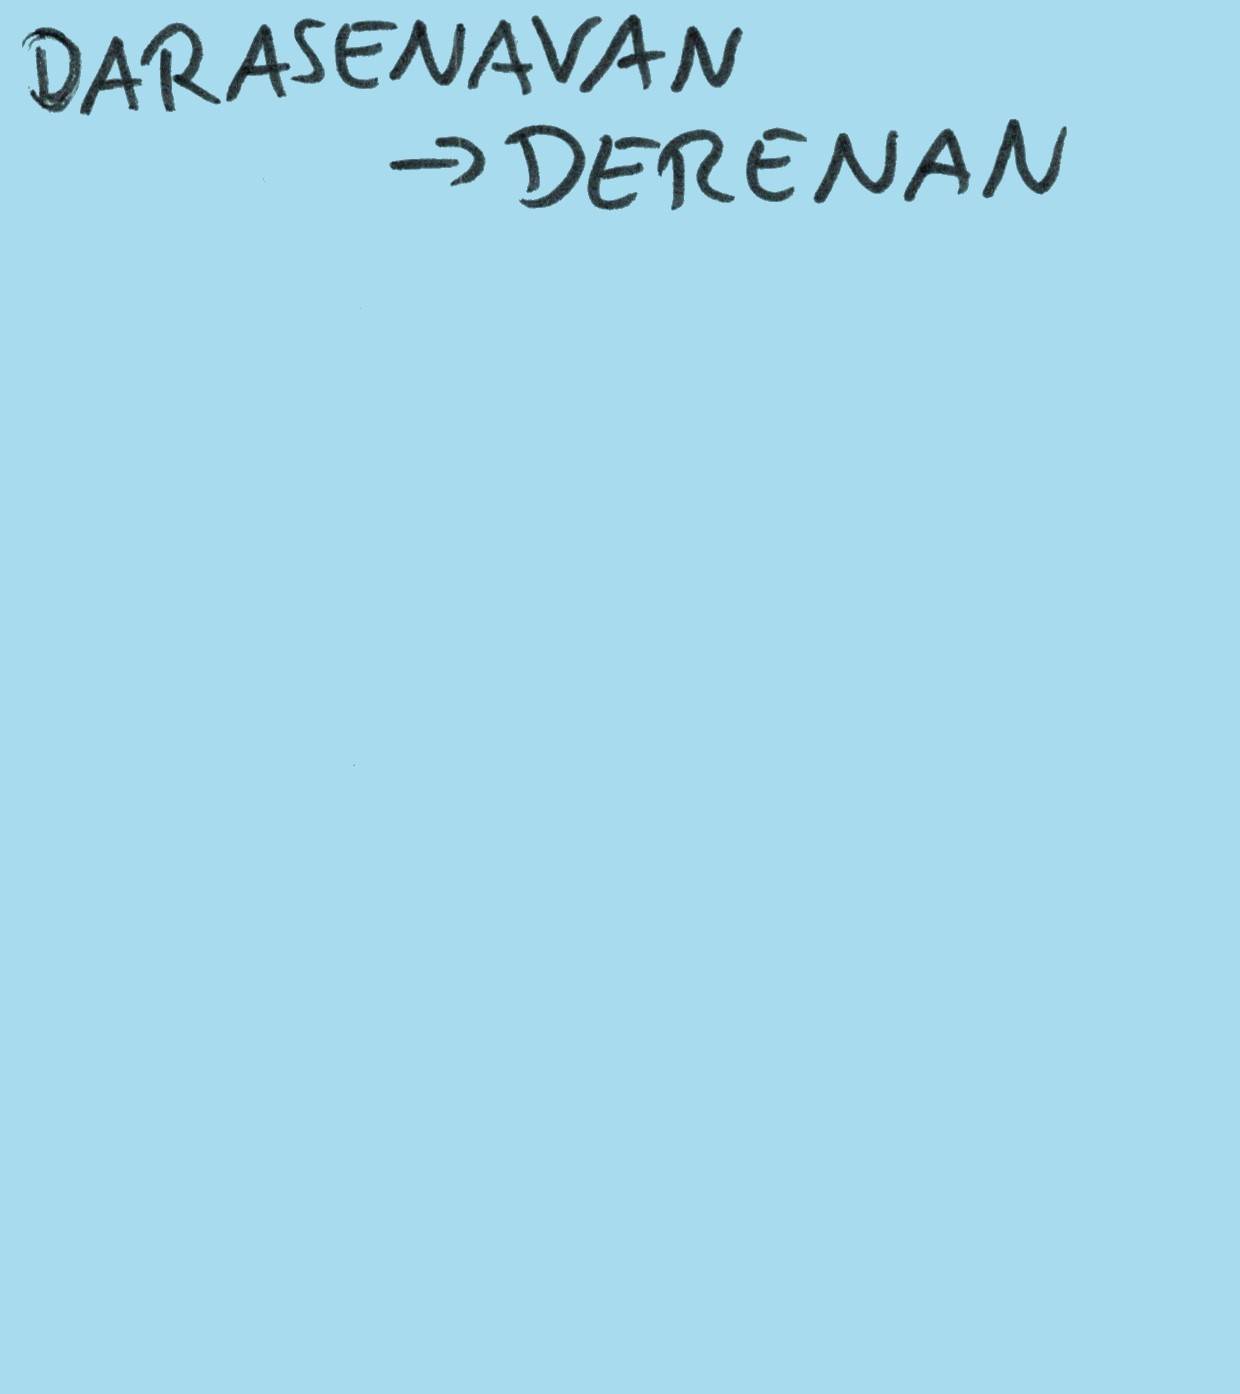 DARASENAVAN
→ DERENAN